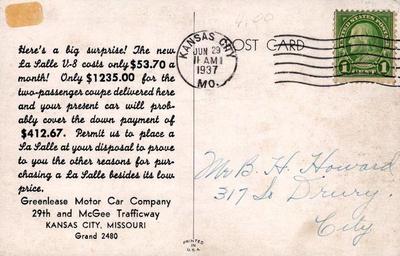 4.00
Here's a big surprise! The new
La Salle V-8 costs only $53.70
a month! Only $1235.00 for the
two-passenger coupe delivered here
and your present car will prob-
ably cover the down payment of
$412.67. Permit us to place a
La Salle at your disposal to prove
to you the other reasons for pur-
chasing a La Salle besides its low
price.
Greenlease Motor Car Company
29th and McGee Trafficway
KANSAS CITY, MISSOURI
Grand 2480
KANSAS CITY
JUN 29
11 AM
1937
MO.
POST CARD
1 1
Mr B. H. Howard
317 So Drury.
City.
PRINTED IN
U.S.A.